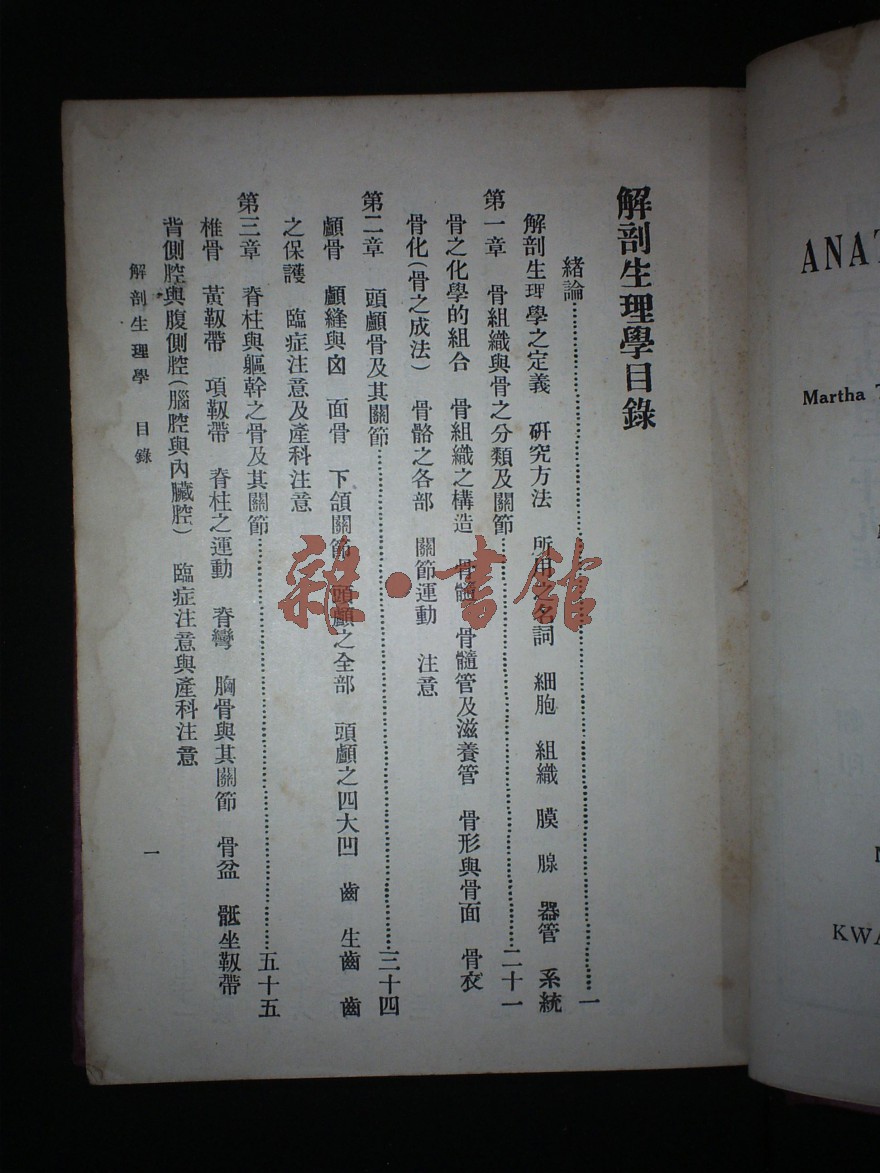 解剖生理學目錄
緒論……一
解剖生理學之定義 研究方法 所用之名詞 細胞 組織 膜 腺 器管 系統
第一章 骨組織與骨之分類及關節……二十一
骨之化學的組合 骨組織之構造 骨髓 骨髓管及滋養管 骨形與骨面 骨衣
骨化(骨之成法) 骨骼之各部 關節運動 注意
第二章 頭顱骨及其關節……三十四
顱骨 顱縫與囟 面骨 下頜關節 頭顱之全部 頭顱之四大凹 齒 生齒 齒
之保護 臨症注意及產科注意
第三章 脊柱與軀幹之骨及其關節……五十五
椎骨 黃靱帶 項靱帶 脊柱之運動 脊彎 胸骨與其關節 骨盆 骶坐靱帶
背側腔與腹側腔(腦腔與內臟腔) 臨症注意與產科注意
解剖生理學 目錄
一
雜·書館
ANAT
Martha T
KWA